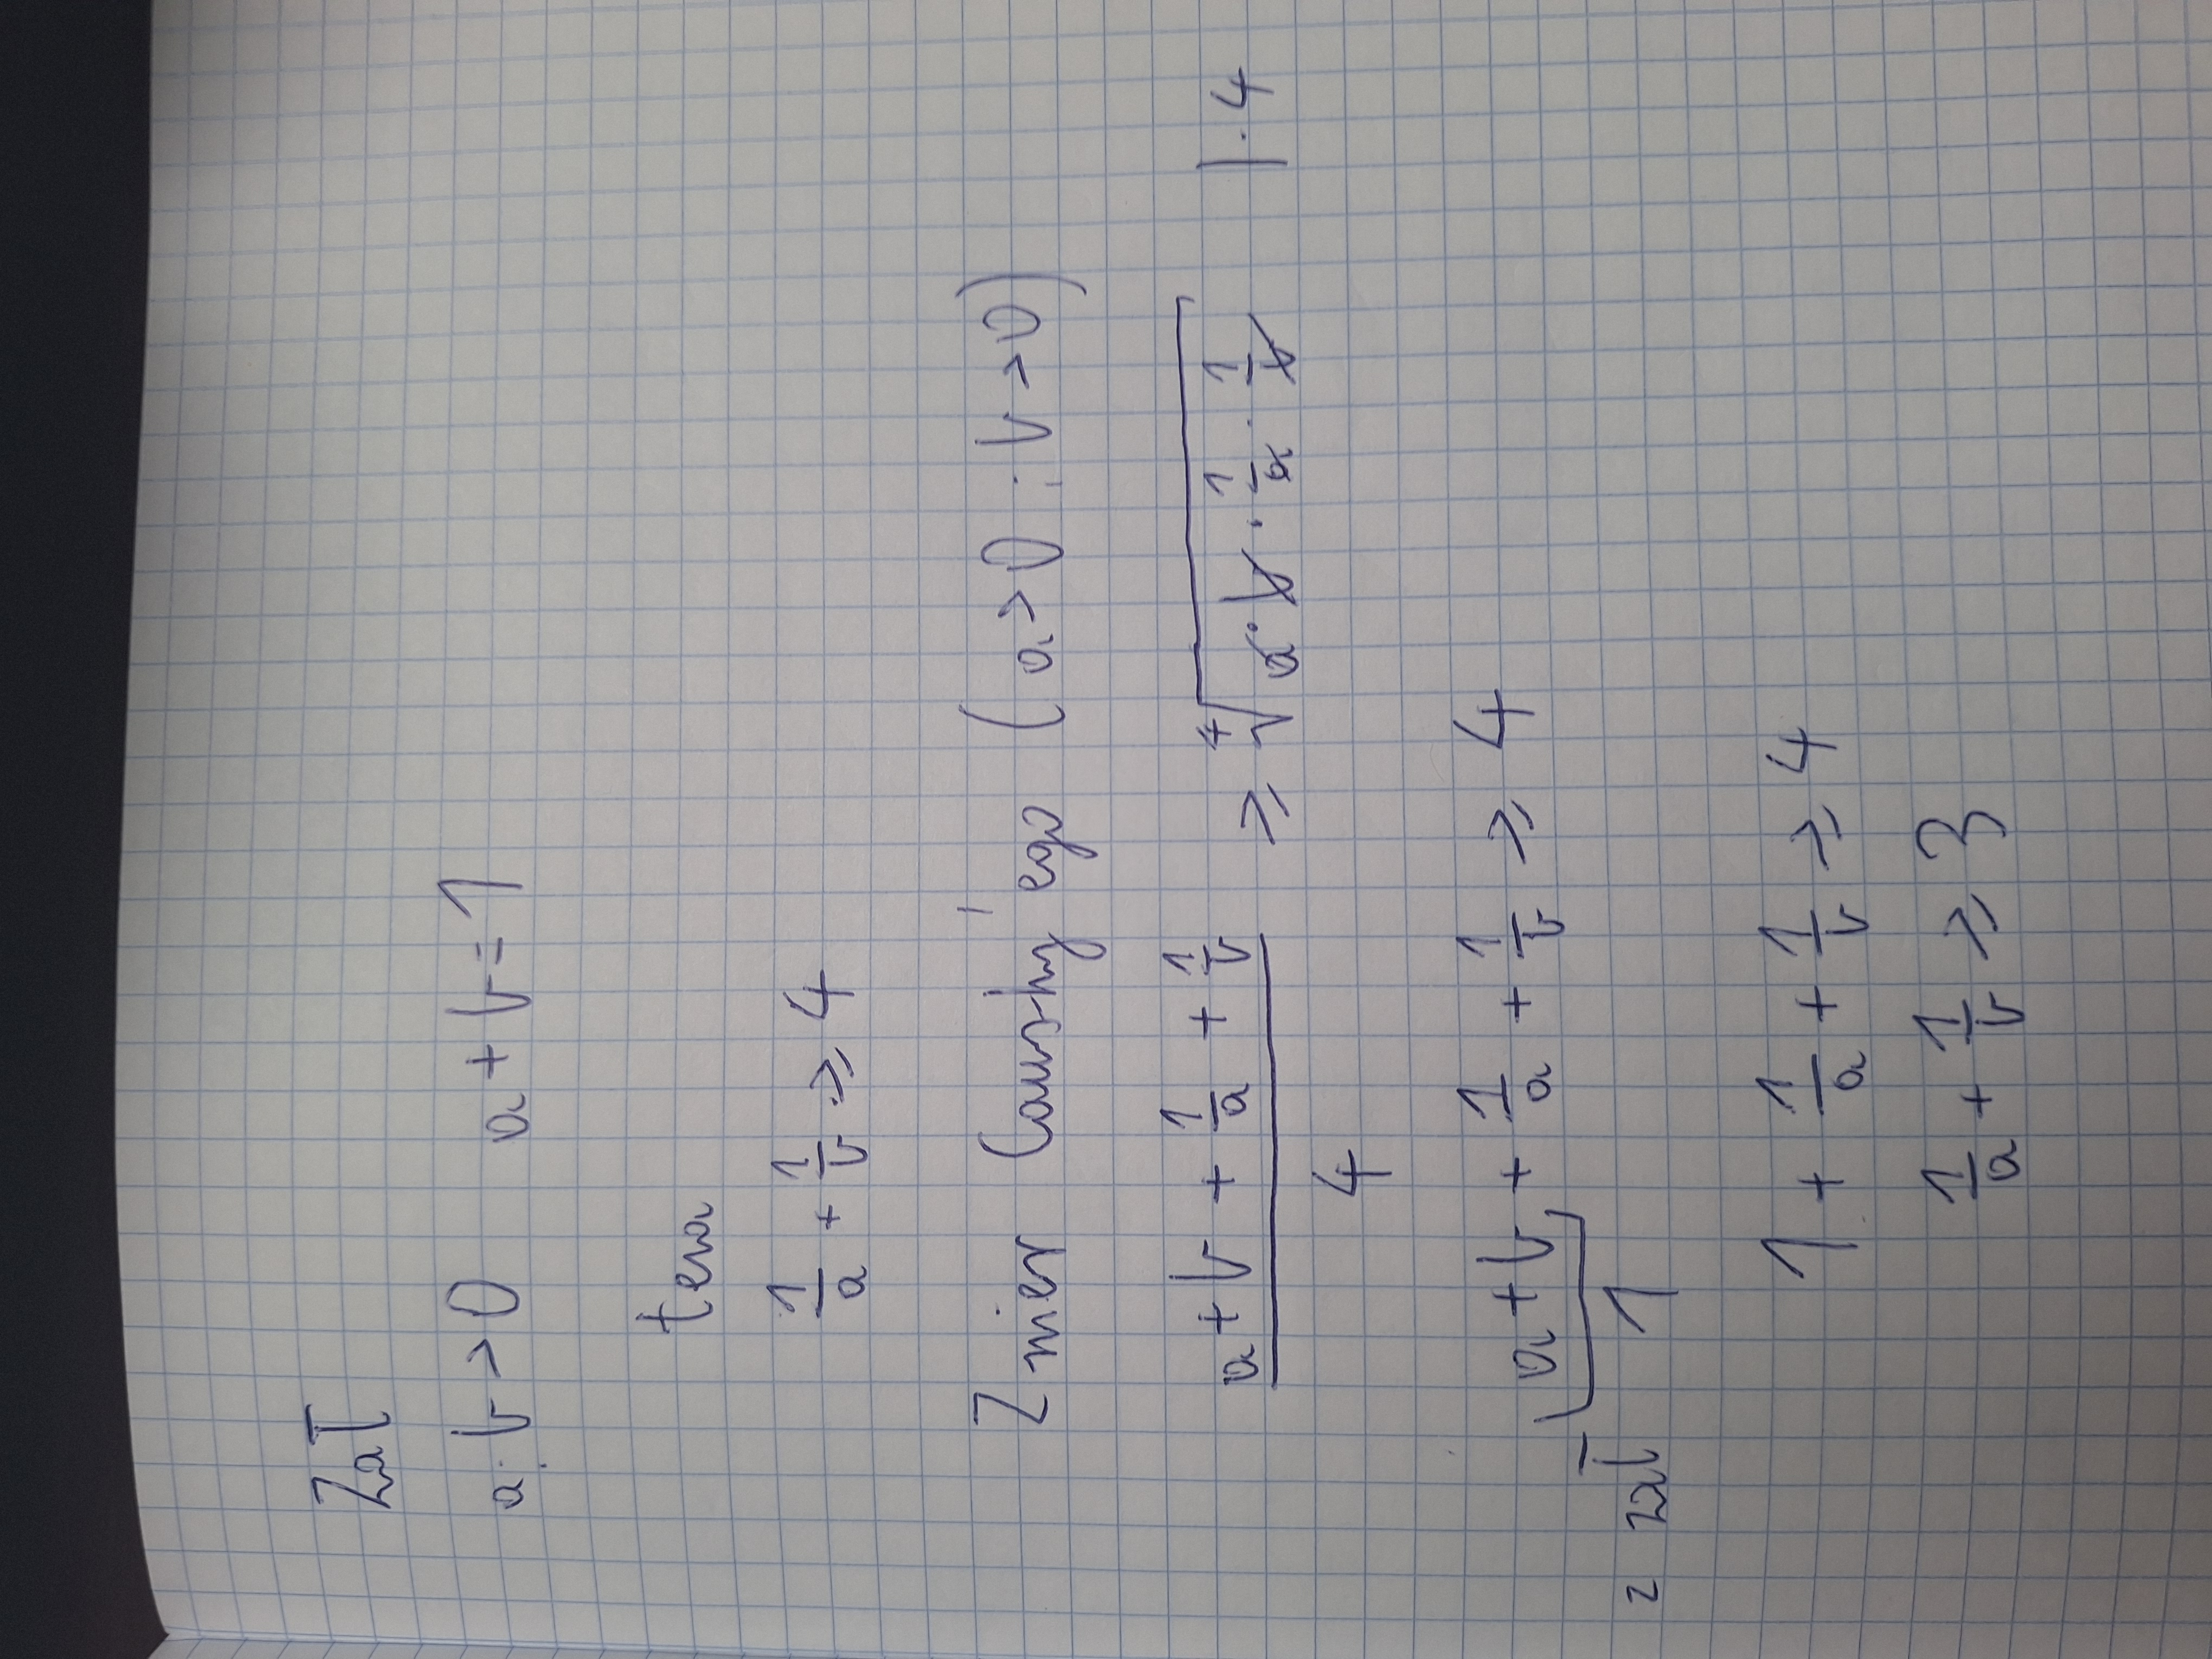 Zał
a · b > 0 a + b = 1
teza
1/a + 1/b ≥ 4
Z nier Cauchy'ego (a > 0 : b > 0)
(a + b + 1/a + 1/b)/4 ≥ ⁴√(a · b · 1/a · 1/b) | · 4
a + b + 1/a + 1/b ≥ 4
z zał 1
1 + 1/a + 1/b ≥ 4
1/a + 1/b ≥ 3